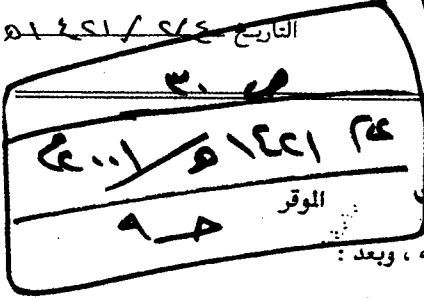 التاريخ ٤/٢ / ١٤٢١هـ
ص ٣٠
١٤٢١هـ / ٢٠٠١م
الموقر
حـ ٩
، وبعد :